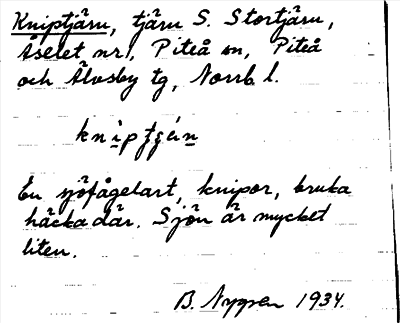 Kniptjärn, tjärn S. Stortjärn,
Åselet nr 1, Piteå sn, Piteå
och Älvsby tg, Norrb. l.
En sjöfågelart, knipor, bruka
häcka där. Sjön är mycket
liten.
B. Nygren 1934.